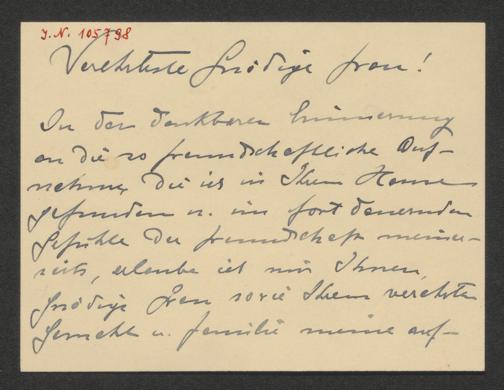 J.N. 105798
Verehrteste gnädige Frau!
In der dankbaren Erinnerung
an die so freundschaftliche Auf-
nahme, die ich in Ihrem Hause
gefunden u. im fortdauernden
Gefühle der Freundschaft meiner-
seits, erlaube ich mir Ihnen,
gnädige Frau sowie Ihrem verehrten
Gemahl u. Familie meine auf-